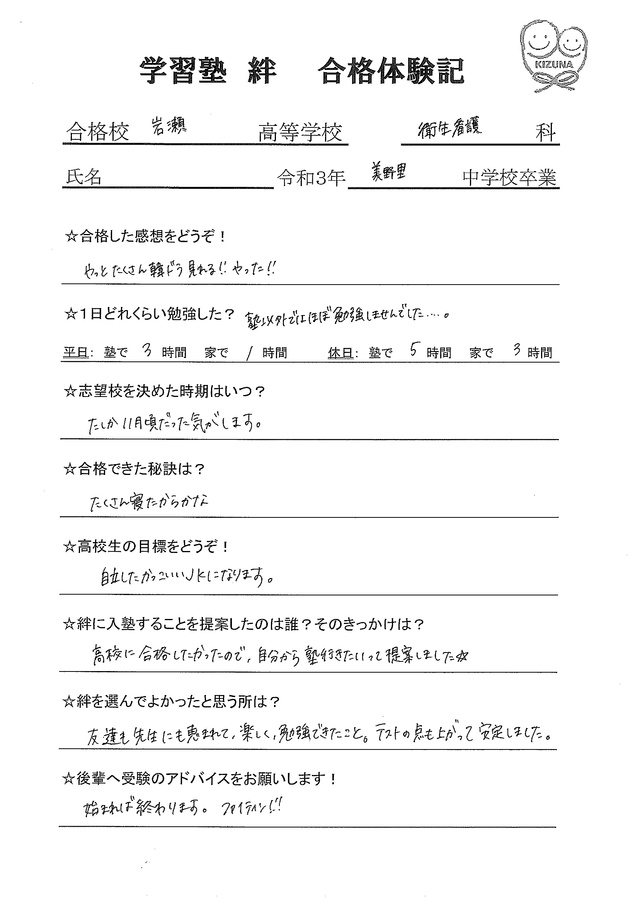 学習塾 絆 合格体験記
KIZUNA
合格校 岩瀬 高等学校 衛生看護 科
氏名 令和3年 美野里 中学校卒業
☆合格した感想をどうぞ！
やっとたくさん韓ドラ見れる!! やった!!
☆1日どれくらい勉強した？ 塾以外ではほぼ勉強しませんでした….。
平日： 塾で 3 時間 家で 1 時間 休日： 塾で 5 時間 家で 3 時間
☆志望校を決めた時期はいつ？
たしか11月頃だった気がします。
☆合格できた秘訣は？
たくさん寝たからかな
☆高校生の目標をどうぞ！
自立したかっこいいJKになります。
☆絆に入塾することを提案したのは誰？そのきっかけは？
高校に合格したかったので、自分から塾行きたいって提案しました☆
☆絆を選んでよかったと思う所は？
友達も先生にも恵まれて、楽しく、勉強できたこと。テストの点も上がって安定しました。
☆後輩へ受験のアドバイスをお願いします！
始まれば終わります。 ファイティン!!